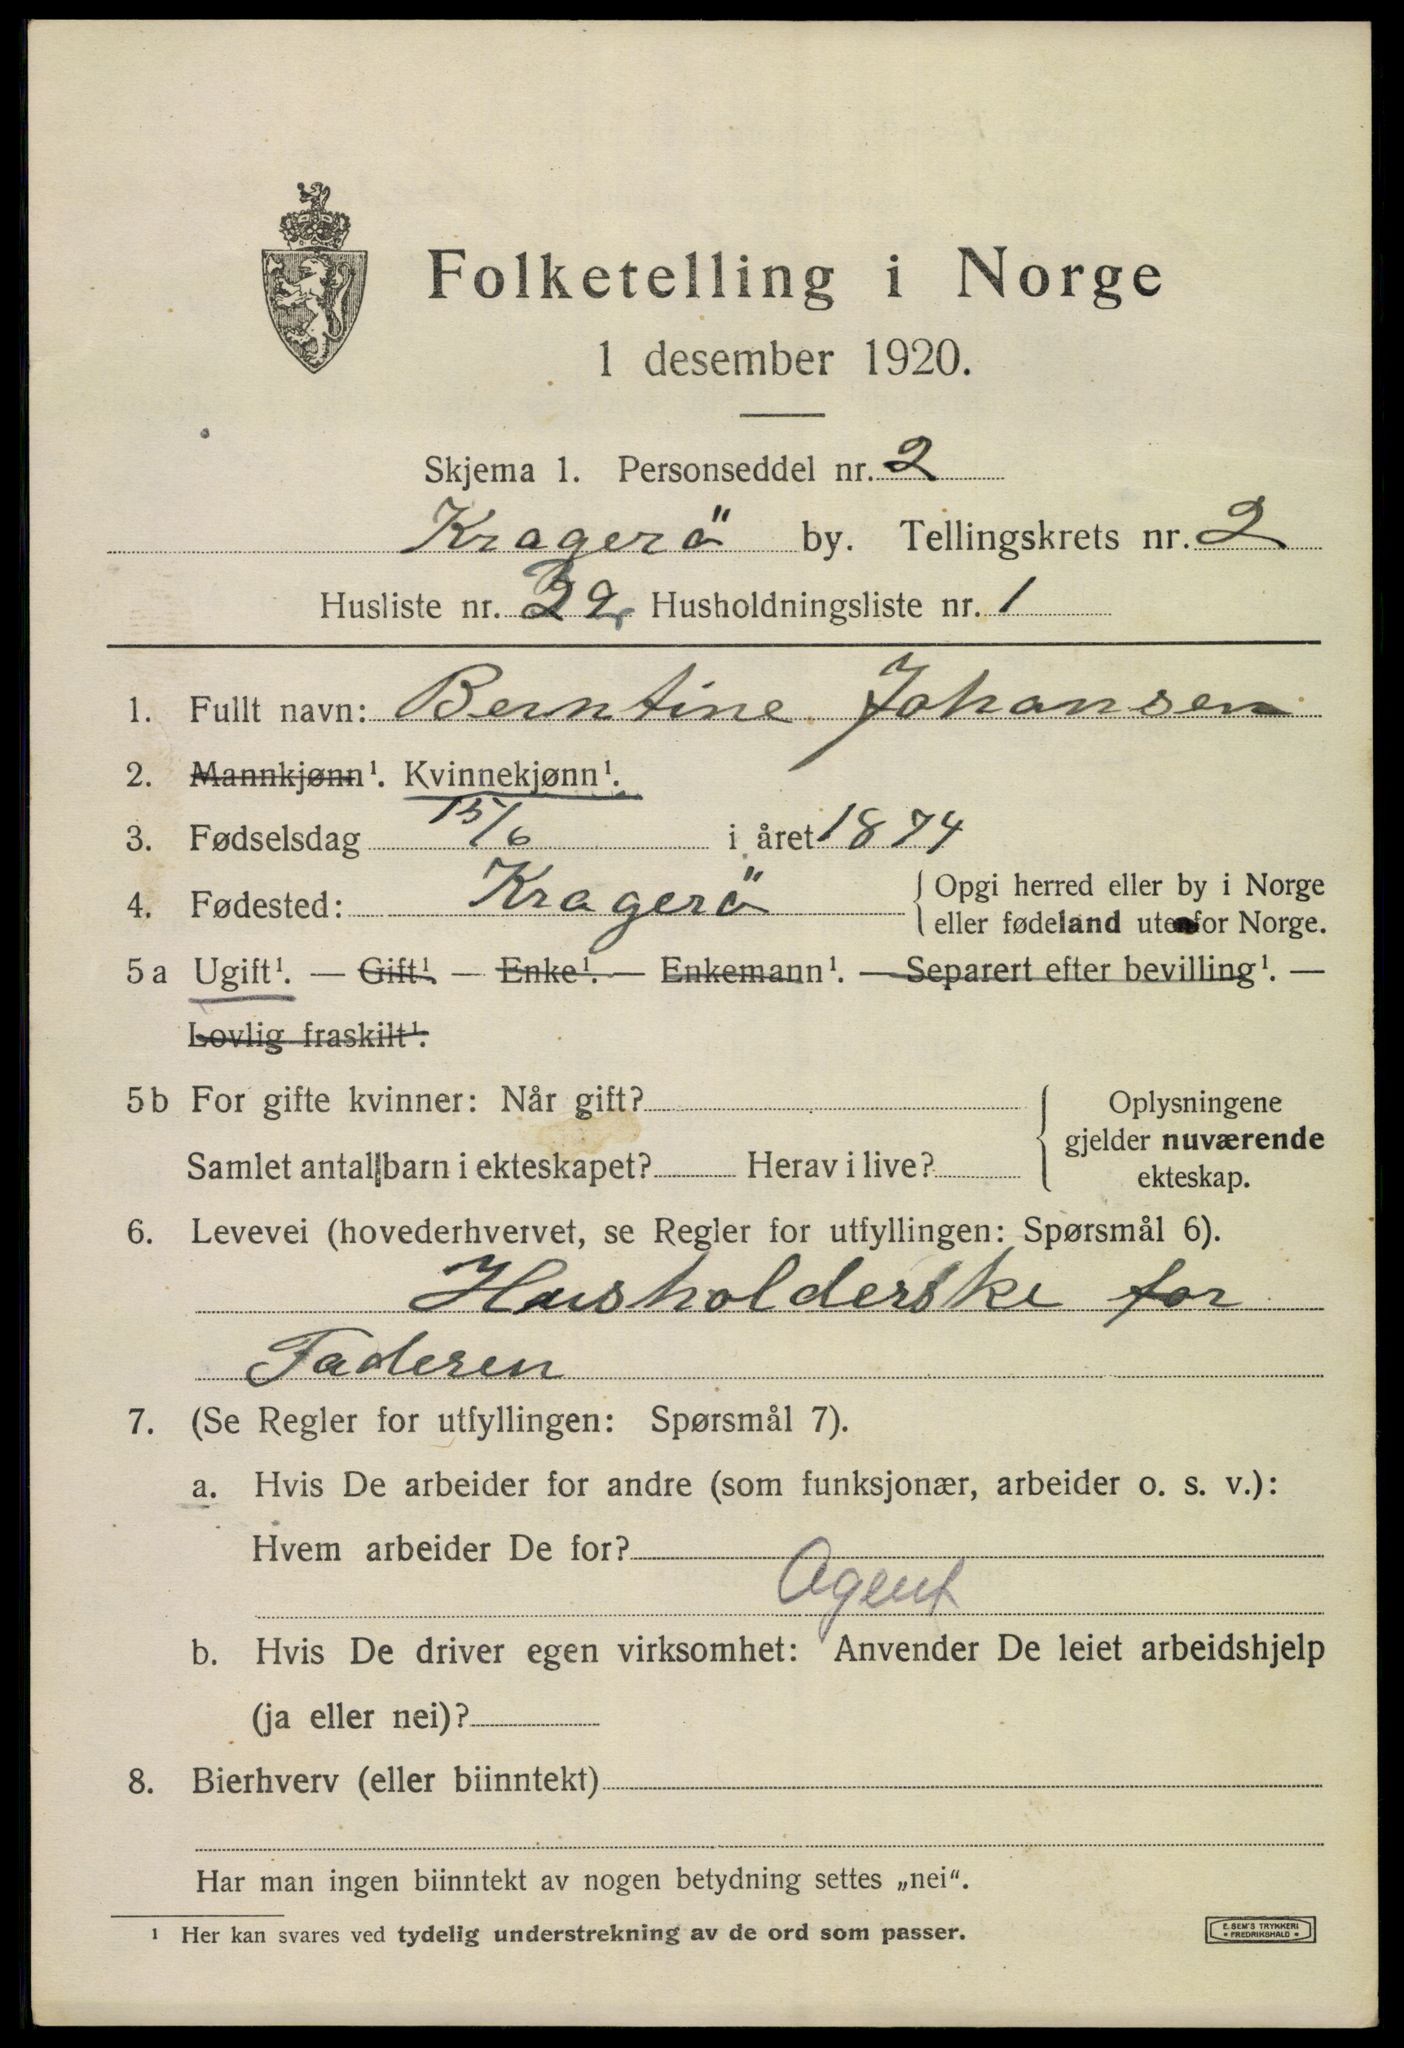 Folketelling i Norge
1 desember 1920.
Skjema 1. Personseddel nr. 2
Kragerö by. Tellingskrets nr. 2
Husliste nr. 32 Husholdningsliste nr. 1
1. Fullt navn: Berntine Johansen
2. Mannkjønn¹. Kvinnekjønn¹.
3. Fødselsdag 15/6 i året 1874
4. Fødested: Kragerö { Opgi herred eller by i Norge
eller fødeland utenfor Norge.
5 a Ugift¹. — Gift¹. — Enke¹. — Enkemann¹. — Separert efter bevilling¹. —
Lovlig fraskilt¹.
5 b For gifte kvinner: Når gift?
Samlet antal barn i ekteskapet? Herav i live?
{ Oplysningene
gjelder nuværende
ekteskap.
6. Levevei (hovederhvervet, se Regler for utfyllingen: Spørsmål 6).
Husholderske for
Faderen
7. (Se Regler for utfyllingen: Spørsmål 7).
a. Hvis De arbeider for andre (som funksjonær, arbeider o. s. v.):
Hvem arbeider De for?
Agent
b. Hvis De driver egen virksomhet: Anvender De leiet arbeidshjelp
(ja eller nei)?
8. Bierhverv (eller biinntekt)
Har man ingen biinntekt av nogen betydning settes „nei“.
¹ Her kan svares ved tydelig understrekning av de ord som passer.
E. SEM'S TRYKKERI
* FREDRIKSHALD *